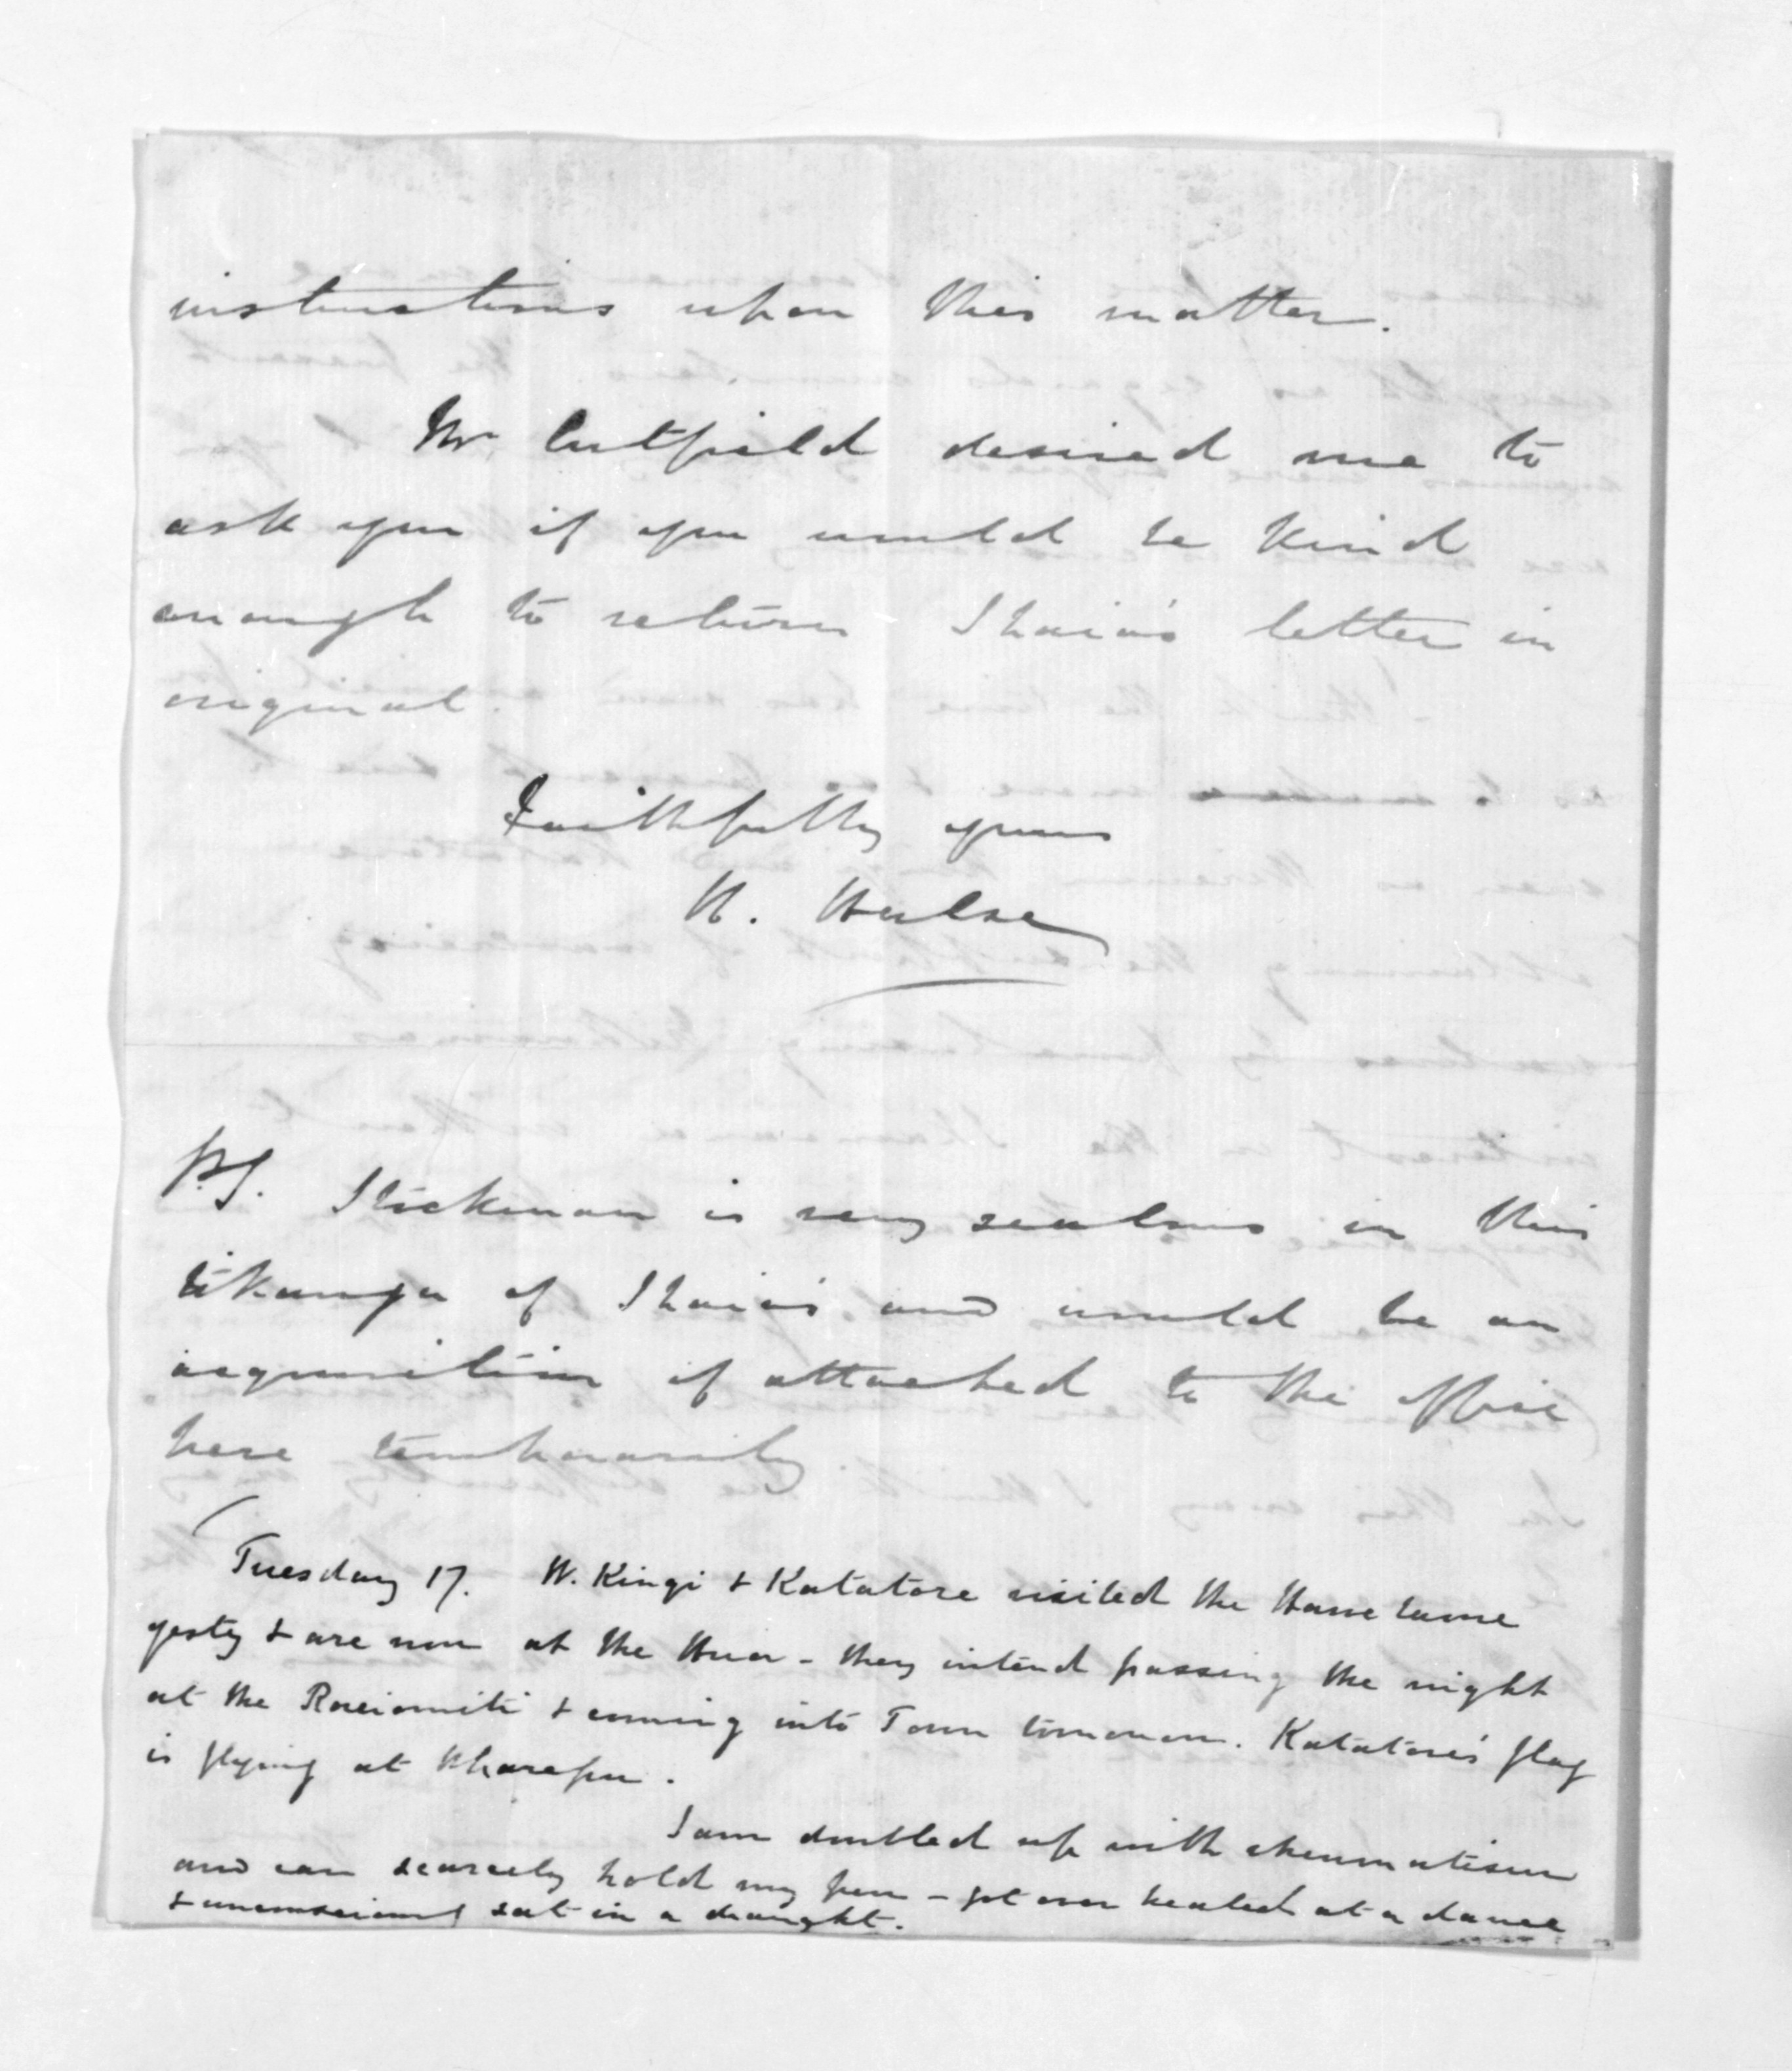 instructions upon this matter.
Mr Cutfield desired me to
ask you if you would be kind
enough to return Ihaia's letter in
original.
Faithfully yours
W. Halse
P.S. Stickman is very zealous in this
tikanga of Ihaia's and would be an
acquisition if attached to the office
here temporarily.
Tuesday 17. W. Kingi & Katatore visited the
yesty & are now at the Hua - they intend passing the night
at the & coming into Town tomorrow. Katatore's flag
is flying at Wharepu.
I am doubled up with rheumatism
and can scarcely hold my pen - got over heated at a dance
& unconsciously sat in a draught.